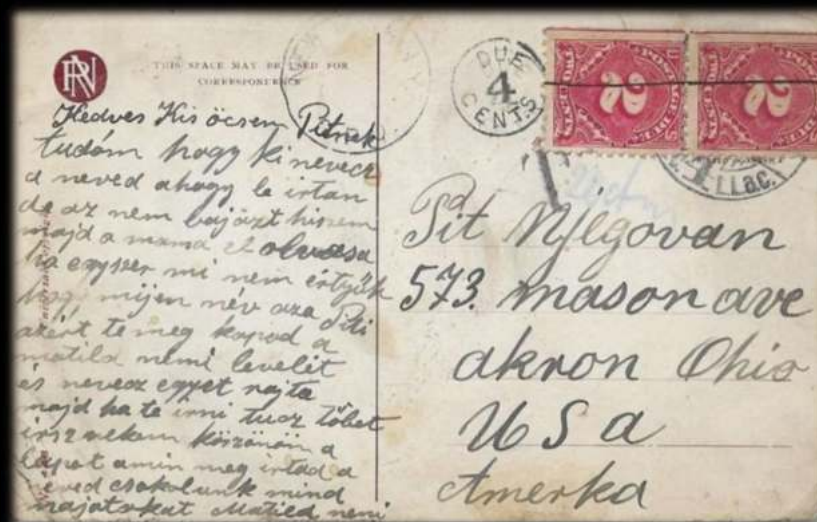 THIS SPACE MAY BE USED FOR
CORRESPONDENCE
Kedves Kis öcsem Pitnek
tudom hogy ki nevecz
a neved ahogy le irtan
de az nem baj azt hiszem
majd a mama el olvassa
ha egyszer mi nem értyük
hogy mijen név aza Piti
azért te meg kapod a
matild némi levelét
és nevecz egyet rajta
majd ha te irni tucz többet
irsz nekem köszönöm a
lapot amin meg irtad a
neved csokolunk mind
najatokat Matild neni
DUE
4
CENTS
POSTAGE DUE
2
POSTAGE DUE
2
Pit Njegovan
573. mason ave
akron Ohio
USa
Amerka